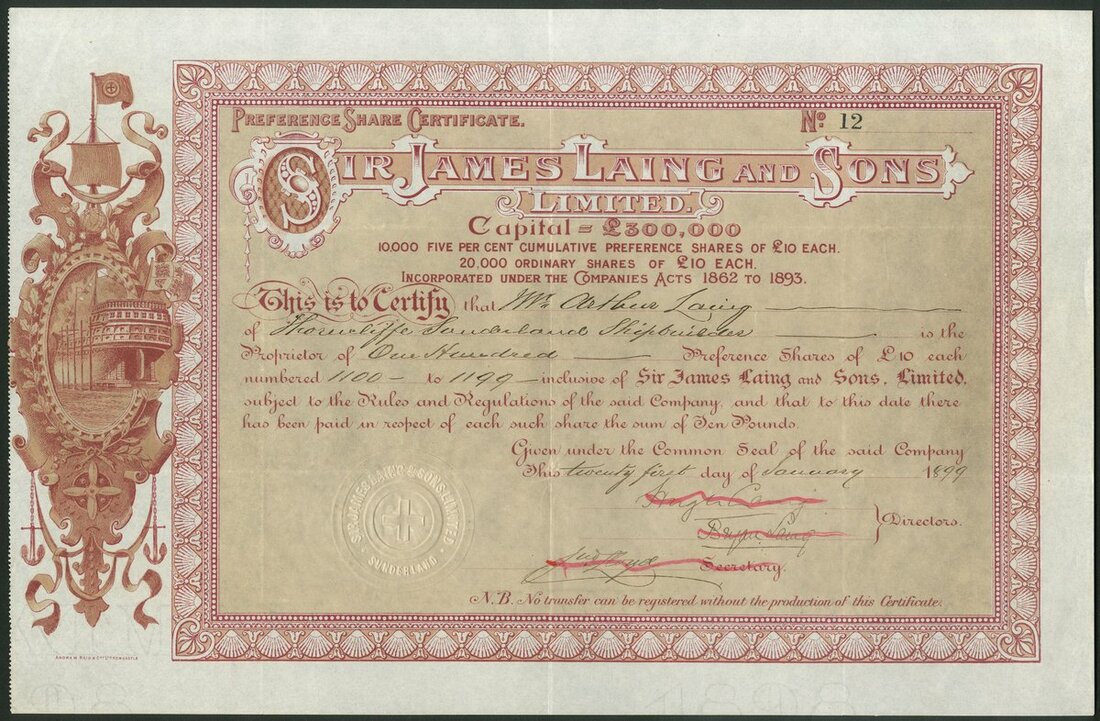 PREFERENCE SHARE CERTIFICATE.
No: 12
SIR JAMES LAING AND SONS
LIMITED.
Capital = £300,000
10,000 FIVE PER CENT CUMULATIVE PREFERENCE SHARES OF £10 EACH.
20,000 ORDINARY SHARES OF £10 EACH.
INCORPORATED UNDER THE COMPANIES ACTS 1862 TO 1893.
This is to Certify that Mr. Arthur Laing
of Thorncliffe Sunderland Shipbuilder is the
Proprietor of One Hundred Preference Shares of £10 each
numbered 1100 to 1199 inclusive of Sir James Laing and Sons, Limited,
subject to the Rules and Regulations of the said Company, and that to this date there
has been paid in respect of each such share the sum of Ten Pounds.
Given under the Common Seal of the said Company
This twenty first day of January 1899
Laing
Bryan Laing
Directors.
Secretary.
SIR JAMES LAING & SONS LIMITED
SUNDERLAND
N.B. No transfer can be registered without the production of this Certificate.
ANDREW REID & COY LD NEWCASTLE